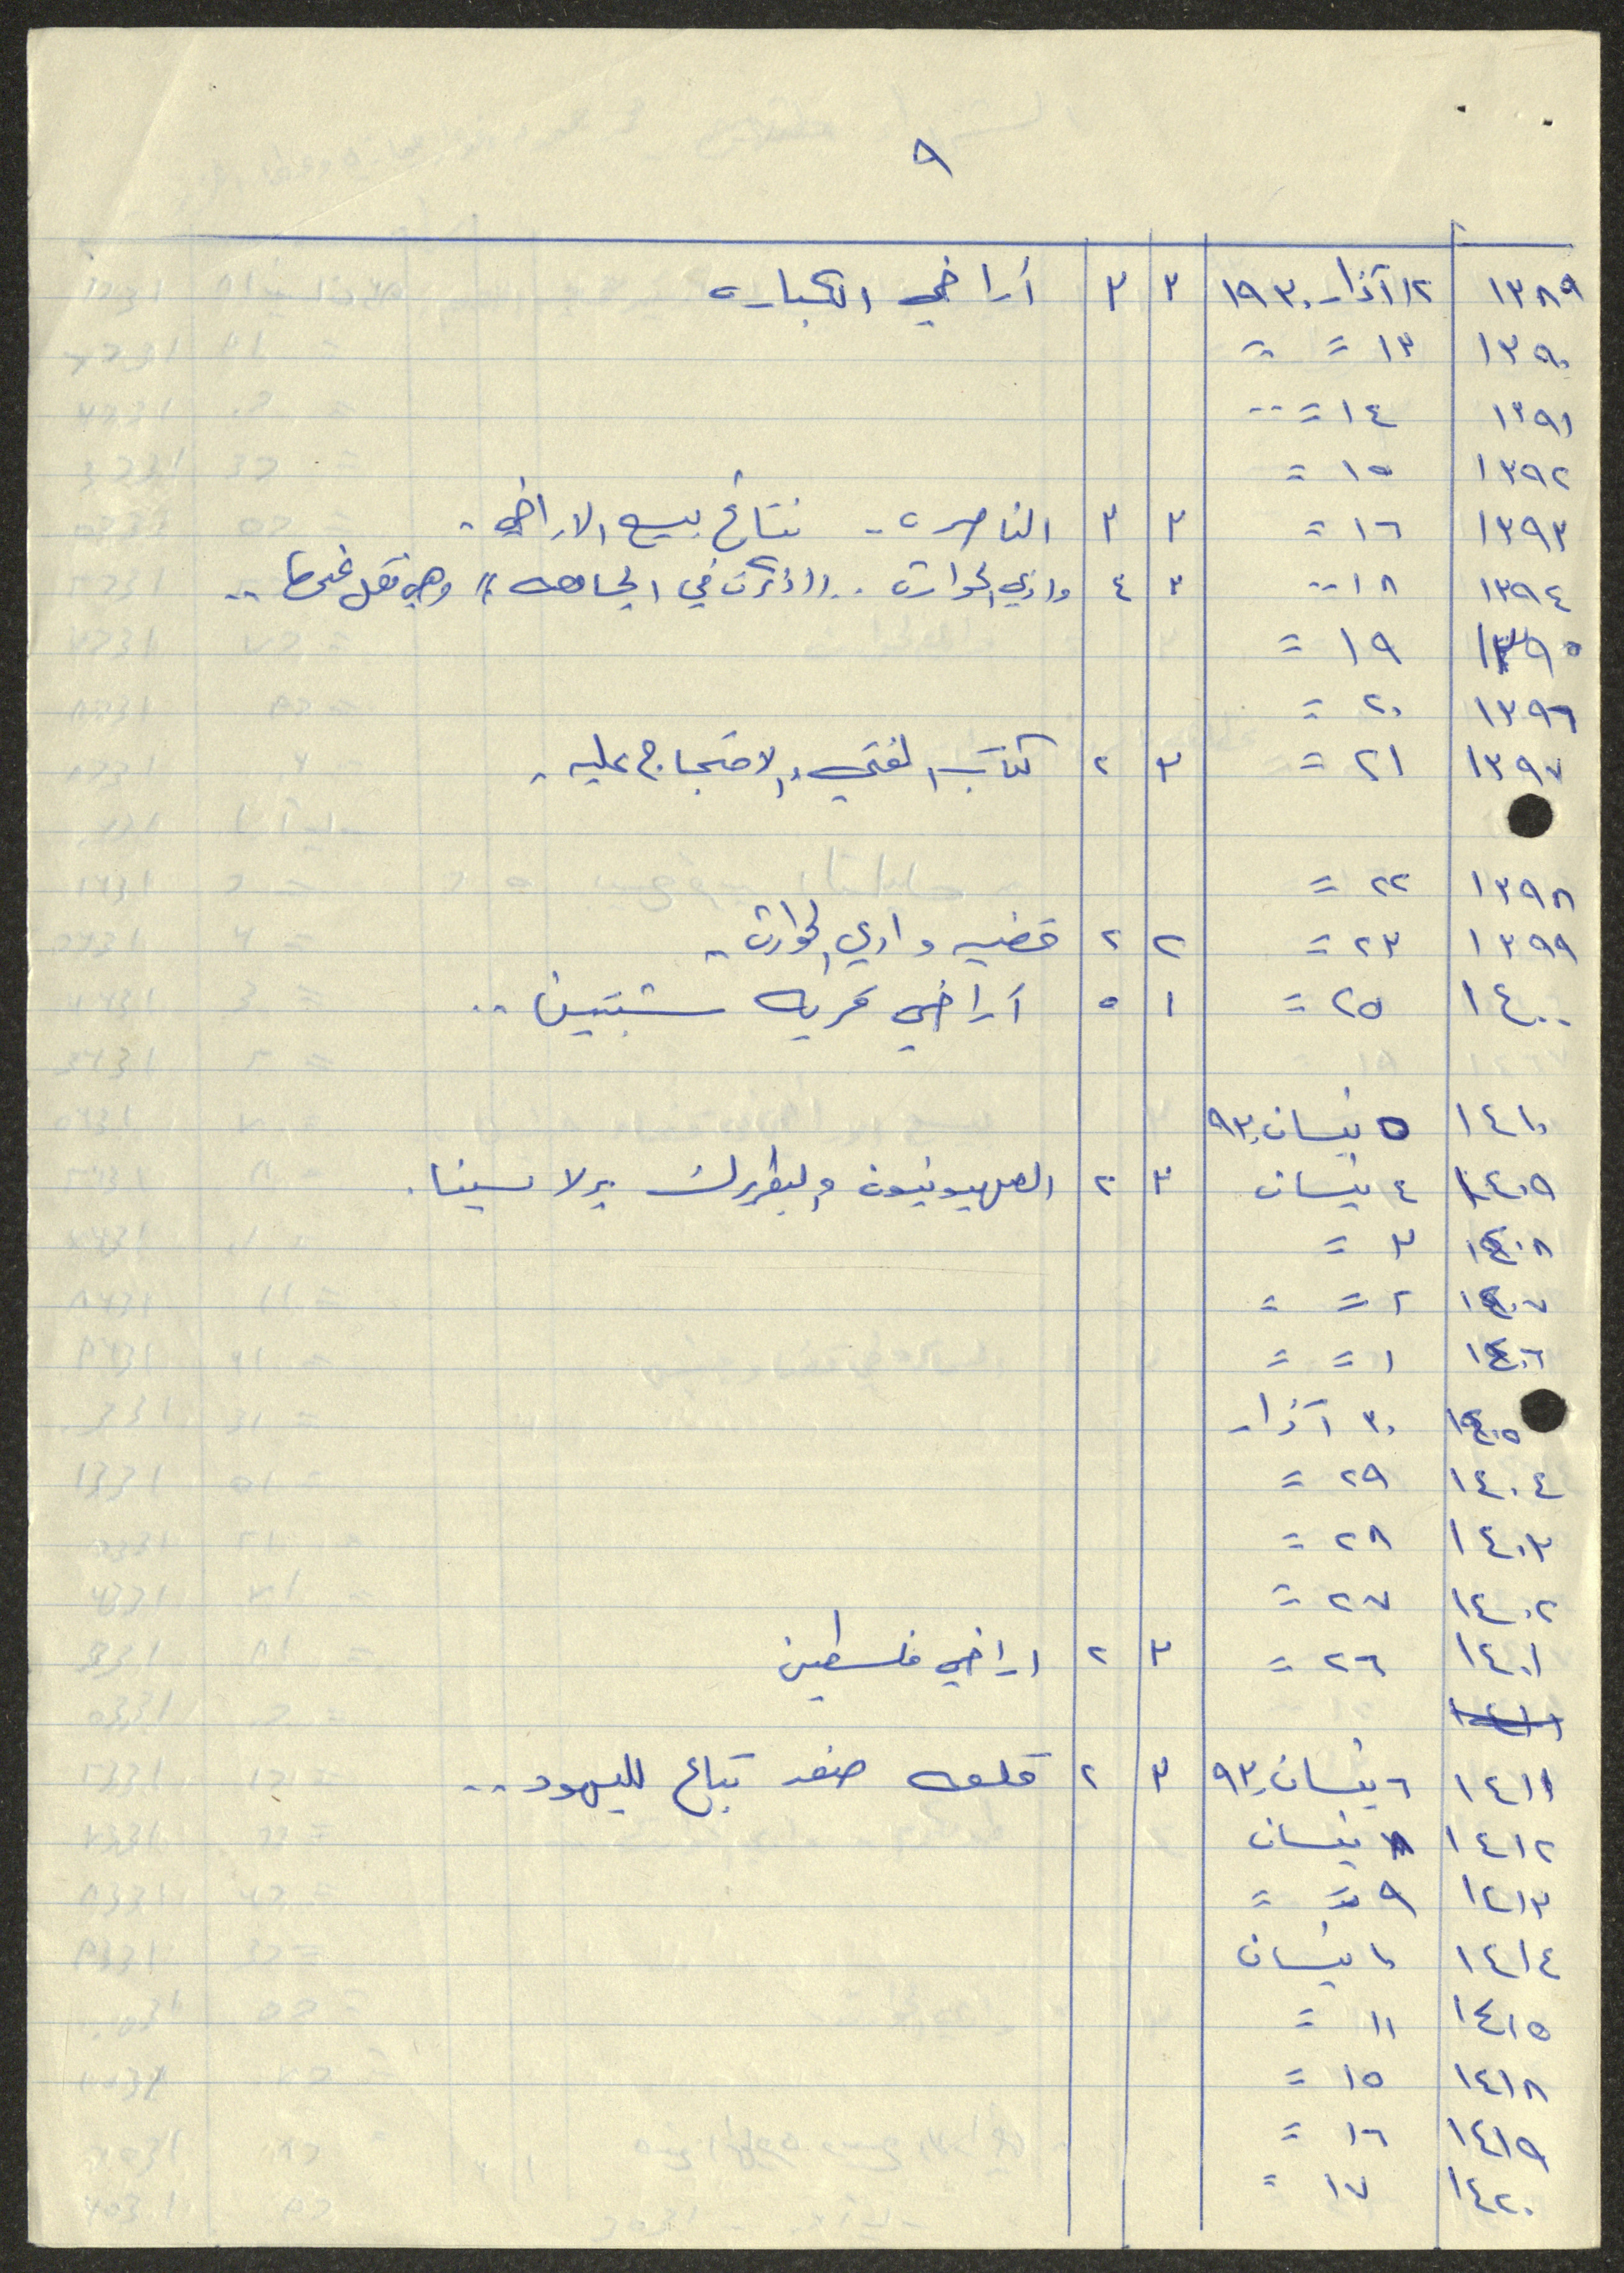 ٩
١٣٨٩ ١٢ آذار ١٩٣٠ ٣ ٣ أراضي الكباره
١٣٩٠ ١٣ = =
١٣٩١ ١٤ = --
١٣٩٢ ١٥ =
١٣٩٣ ١٦ = ٣ ٣ الناصره .. نتائج بيع الاراضي .
١٣٩٤ ١٨ -- ٣ ٤ وادي الحوارث .. في وهي ..
١٣٩٥ ١٩ =
١٣٩٦ ٢٠ =
١٣٩٧ ٢١ = ٣ ٢ كتاب المفتي والاحتجاج عليه .
١٣٩٨ ٢٢ =
١٣٩٩ ٢٣ = ٢ ٢ قضيه وادي الحوارث ..
١٤٠٠ ٢٥ = ١ ٥ أراضي قريه شبتين ..
١٤١٠ ٥ نيسان ٩٣٠
١٤٠٩ ٤ نيسان ٣ ٢ الصهيونيون والبطريرك برلاسينا .
١٤٠٨ ٣ =
١٤٠٧ ٢ = =
١٤٠٦ ١ = =
١٤٠٥ ٣٠ آذار
١٤٠٤ ٢٩ =
١٤٠٣ ٢٨ =
١٤٠٢ ٢٧ =
١٤٠١ ٢٦ = ٣ ٢ اراضي فلسطين
١٤١١ ٦ نيسان ٩٣٠ ٣ ٢ قلعه صفد تباع لليهود ..
١٤١٢ ٨ نيسان
١٤١٣ ٩ = =
١٤١٤ ١٠ نيسان
١٤١٥ ١١ =
١٤١٨ ١٥ =
١٤١٩ ١٦ =
١٤٢٠ ١٧ =